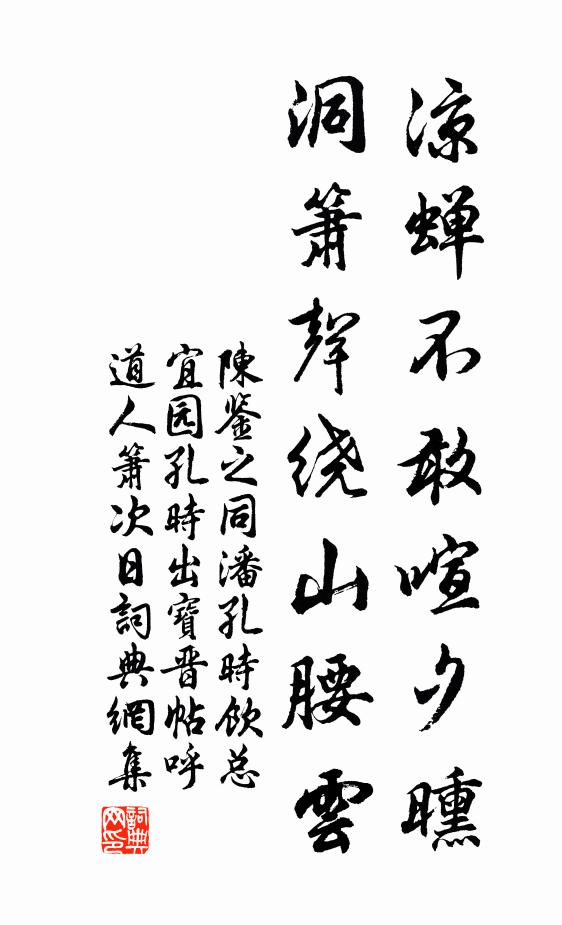 凉蝉不敢喧夕曛
洞箫聲绕山腰雲
陳鉴之同潘孔時飲总
宜园孔時出寶晋帖呼
道人箫次日詞典網集
詞典网印